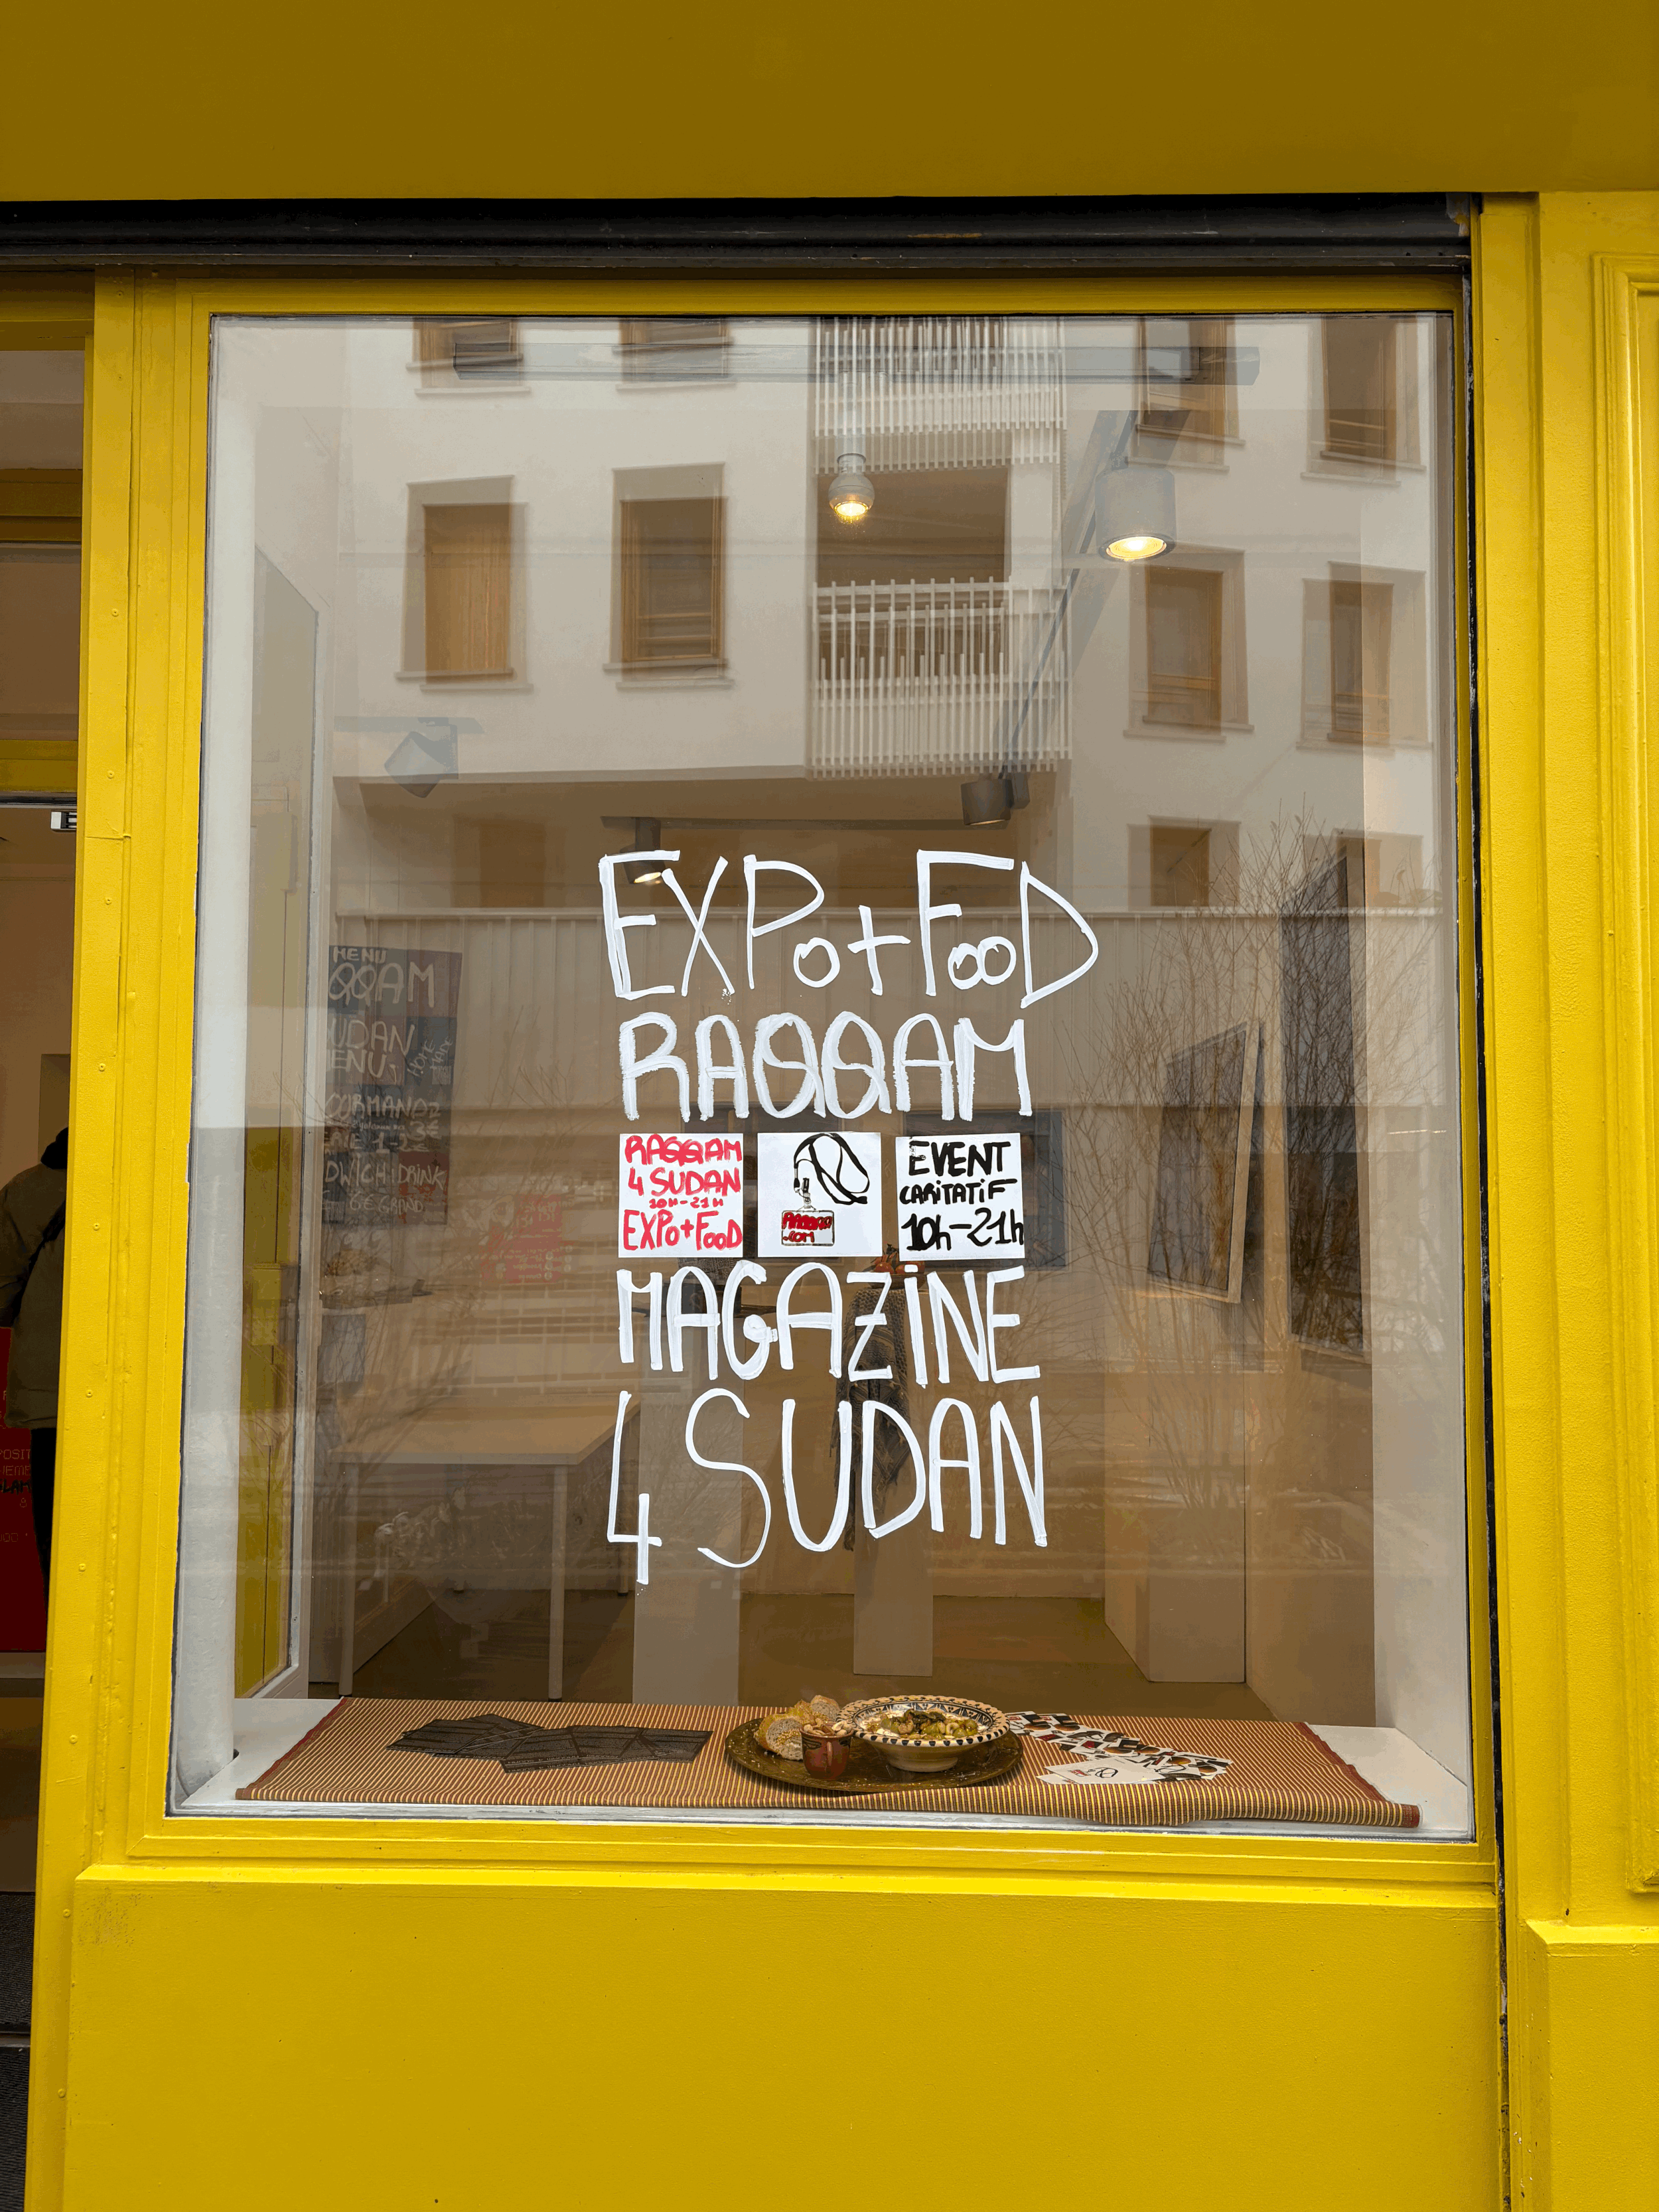 EXPo+FooD
RAQQAM
RAQQAM
4 SUDAN
10H-21H
EXPo+FooD
RAQQAM
.COM
EVENT
CARiTATiF
10h-21h
MAGAZiNE
4 SUDAN
MENU
QQAM
UDAN
ENU
HOME
OORMANDZ
DWICH+DRINK